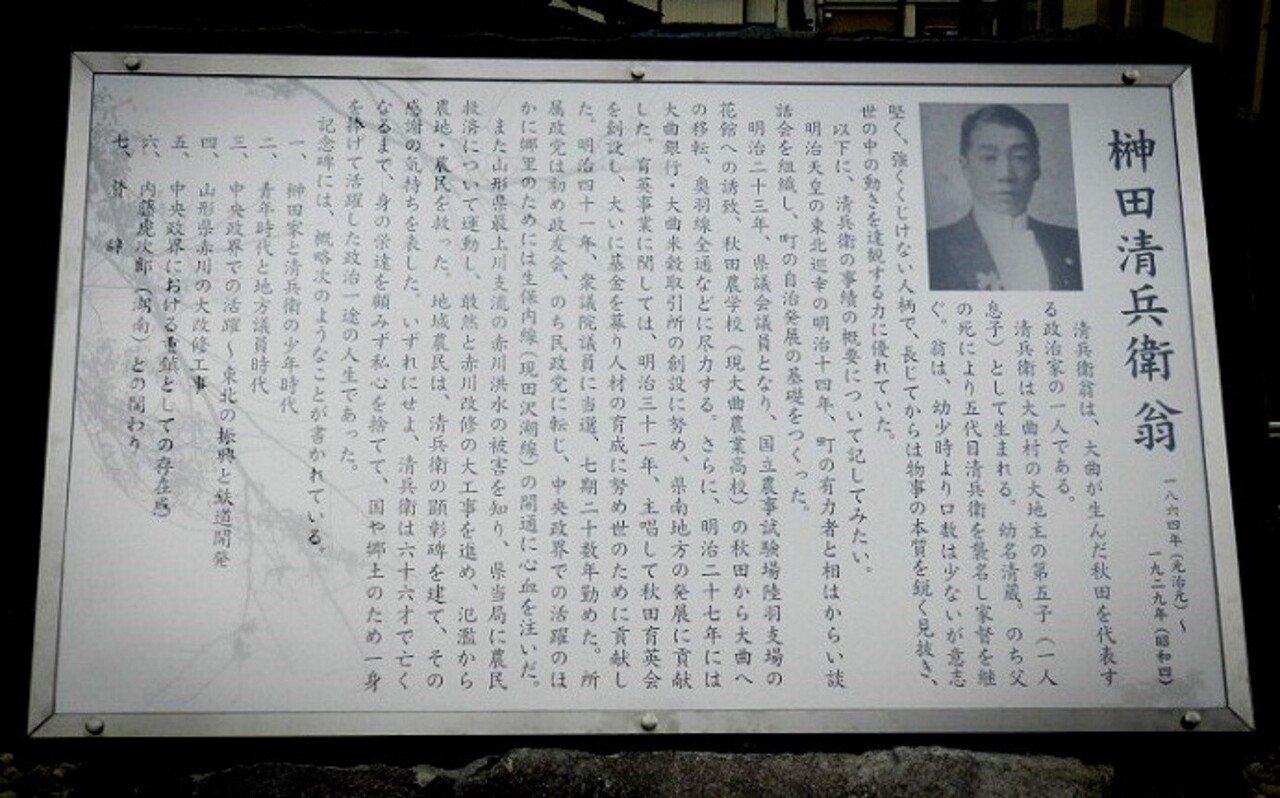 榊田清兵衛翁
一八六四年（元治元）～
一九二九年（昭和四）
清兵衛翁は、大曲が生んだ秋田を代表す
る政治家の一人である。
清兵衛は大曲村の大地主の第五子（一人
息子）として生まれる。幼名清蔵。のち父
の死により五代目清兵衛を襲名し家督を継
ぐ。翁は、幼少時より口数は少ないが意志
堅く、強くくじけない人柄で、長じてからは物事の本質を鋭く見抜き、
世の中の動きを達観する力に優れていた。
以下に、清兵衛の事績の概要について記してみたい。
明治天皇の東北巡幸の明治十四年、町の有力者と相はからい談
話会を組織し、町の自治発展の基礎をつくった。
明治二十三年、県議会議員となり、国立農事試験場陸羽支場の
花館への誘致、秋田農学校（現大曲農業高校）の秋田から大曲へ
の移転、奥羽線全通などに尽力する。さらに、明治二十七年には
大曲銀行・大曲米穀取引所の創設に努め、県南地方の発展に貢献
した。育英事業に関しては、明治三十一年、主唱して秋田育英会
を創設し、大いに基金を募り人材の育成に努め世のために貢献し
た。明治四十一年、衆議院議員に当選、七期二十数年勤めた。所
属政党は初め政友会、のち民政党に転じ、中央政界での活躍のほ
かに郷里のためには生保内線（現田沢湖線）の開通に心血を注いだ。
また山形県最上川支流の赤川洪水の被害を知り、県当局に農民
救済について運動し、敢然と赤川改修の大工事を進め、氾濫から
農地・農民を救った。地域農民は、清兵衛の顕彰碑を建て、その
感謝の気持ちを表した。いずれにせよ、清兵衛は六十六才で亡く
なるまで、身の栄達を顧みず私心を捨てて、国や郷土のため一身
を捧げて活躍した政治一途の人生であった。
記念碑には、概略次のようなことが書かれている。
一、榊田家と清兵衛の少年時代
二、青年時代と地方議員時代
三、中央政界での活躍～東北の振興と鉄道開発
四、山形県赤川の大改修工事
五、中央政界における重鎮としての存在感
六、内藤虎次郎（湖南）との関わり
七、賛碑